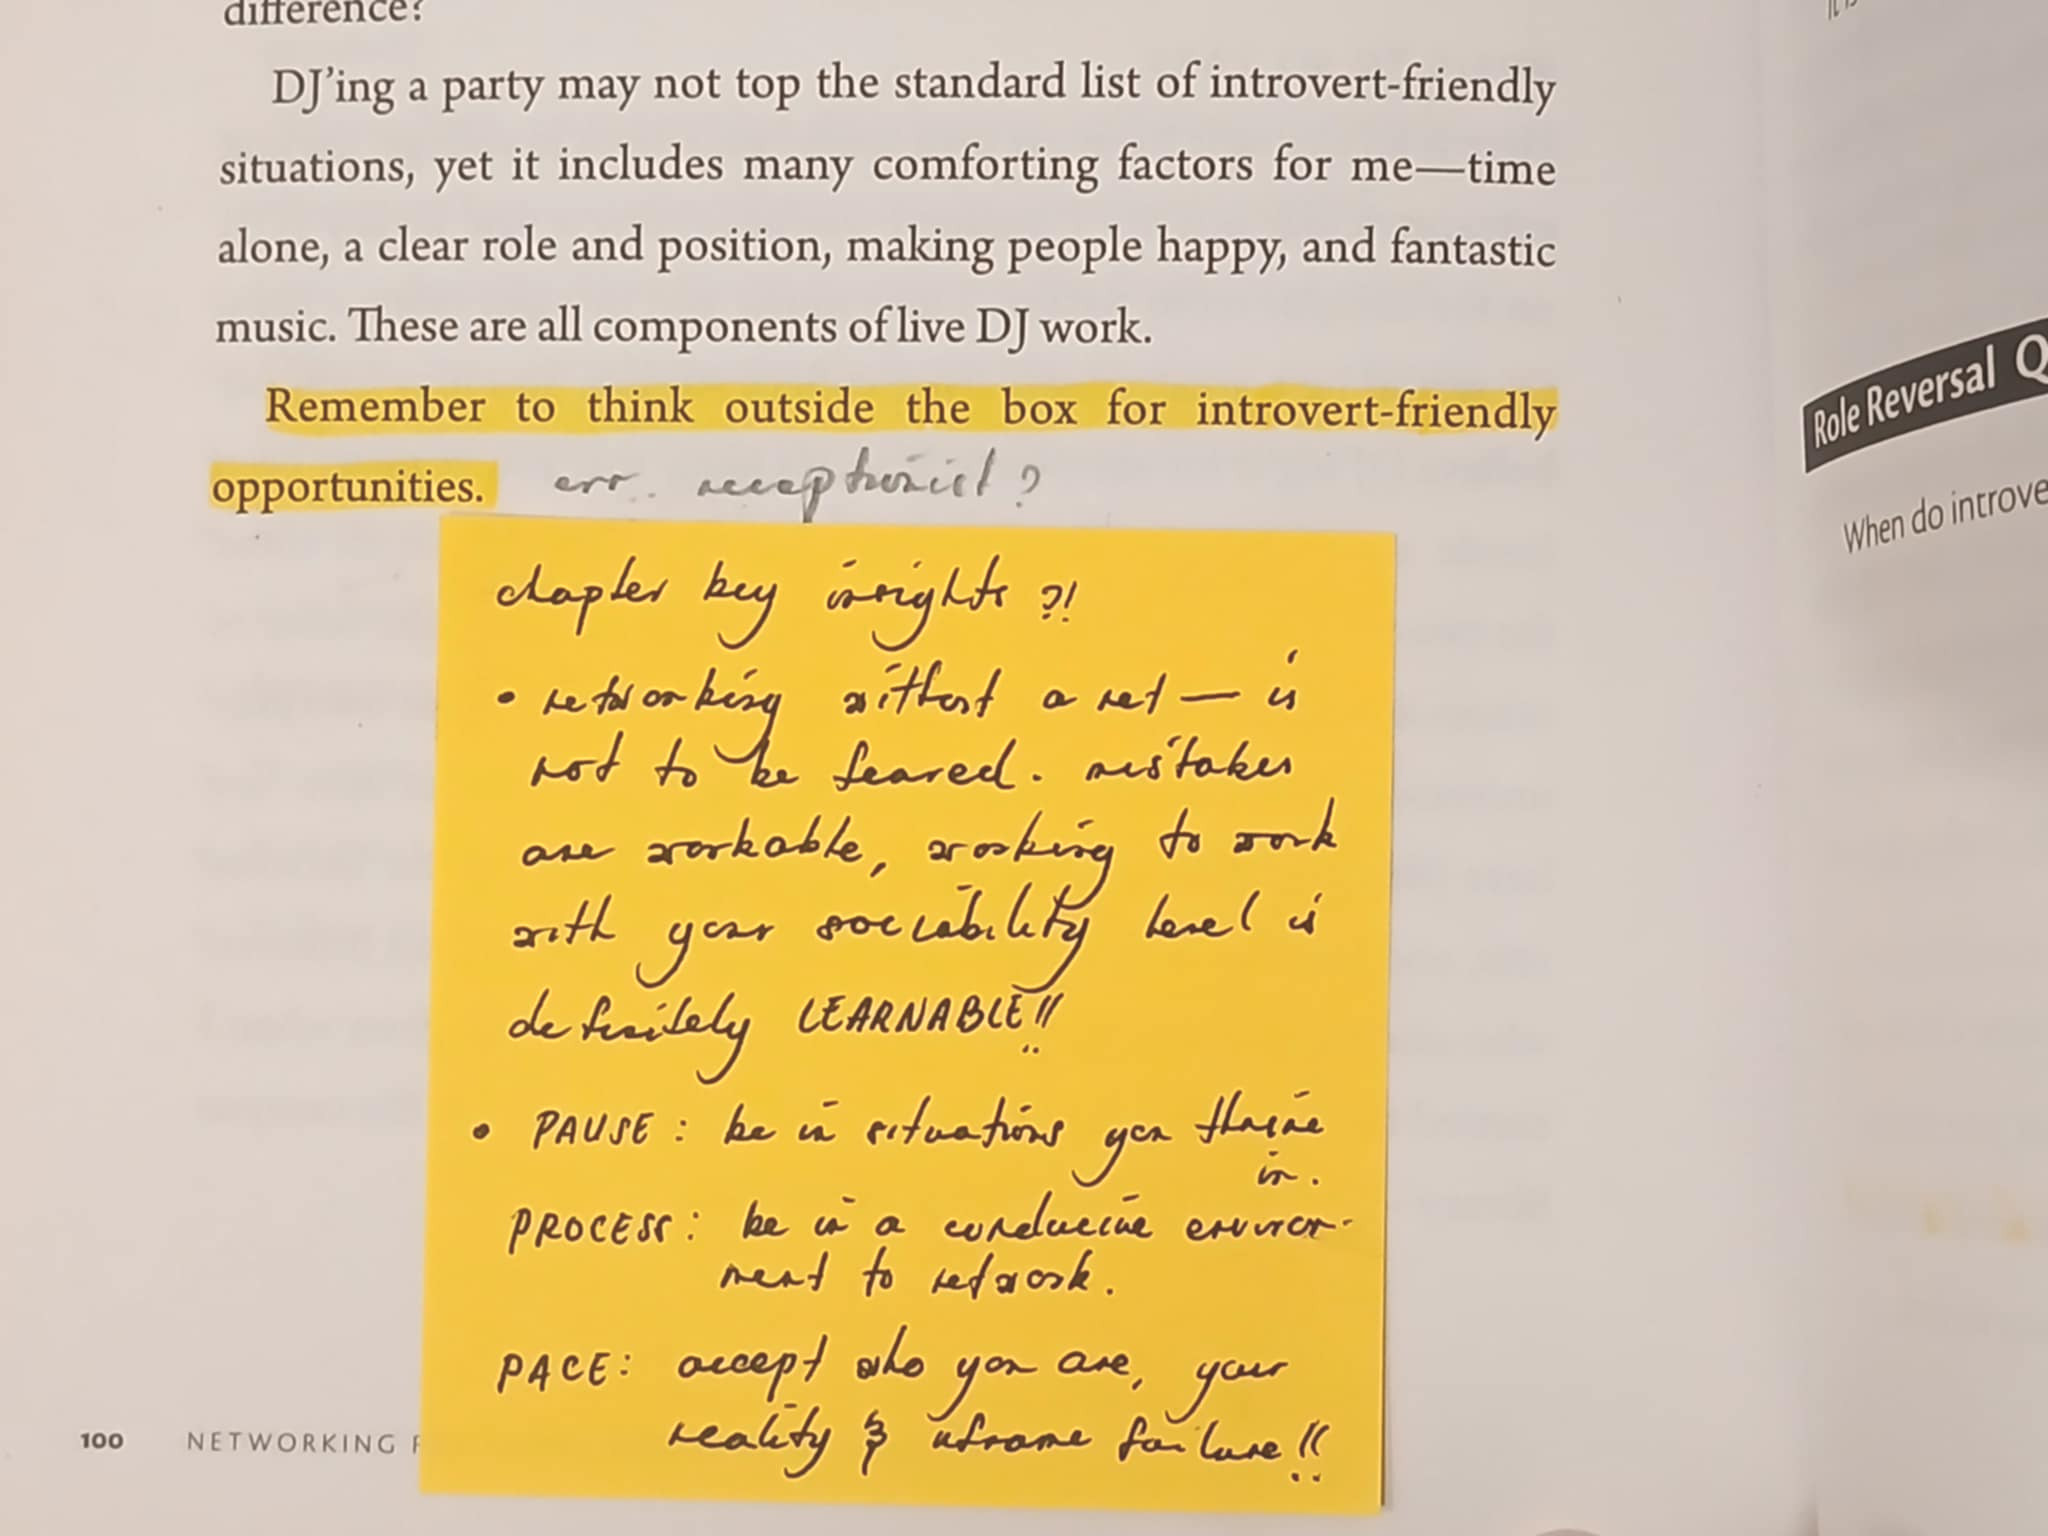 difference?
DJ’ing a party may not top the standard list of introvert-friendly
situations, yet it includes many comforting factors for me—time
alone, a clear role and position, making people happy, and fantastic
music. These are all components of live DJ work.
Remember to think outside the box for introvert-friendly
opportunities. err.. receptionist?
chapter key insights ?!
• networking without a net — is
not to be feared. mistakes
are workable, working to work
with your sociability level is
definitely LEARNABLE!!
• PAUSE: be in situations you thrive
in.
PROCESS: be in a conducive environ-
ment to network.
PACE: accept who you are, your
reality & reframe failure!!
100 NETWORKING
Role Reversal Q
When do introve